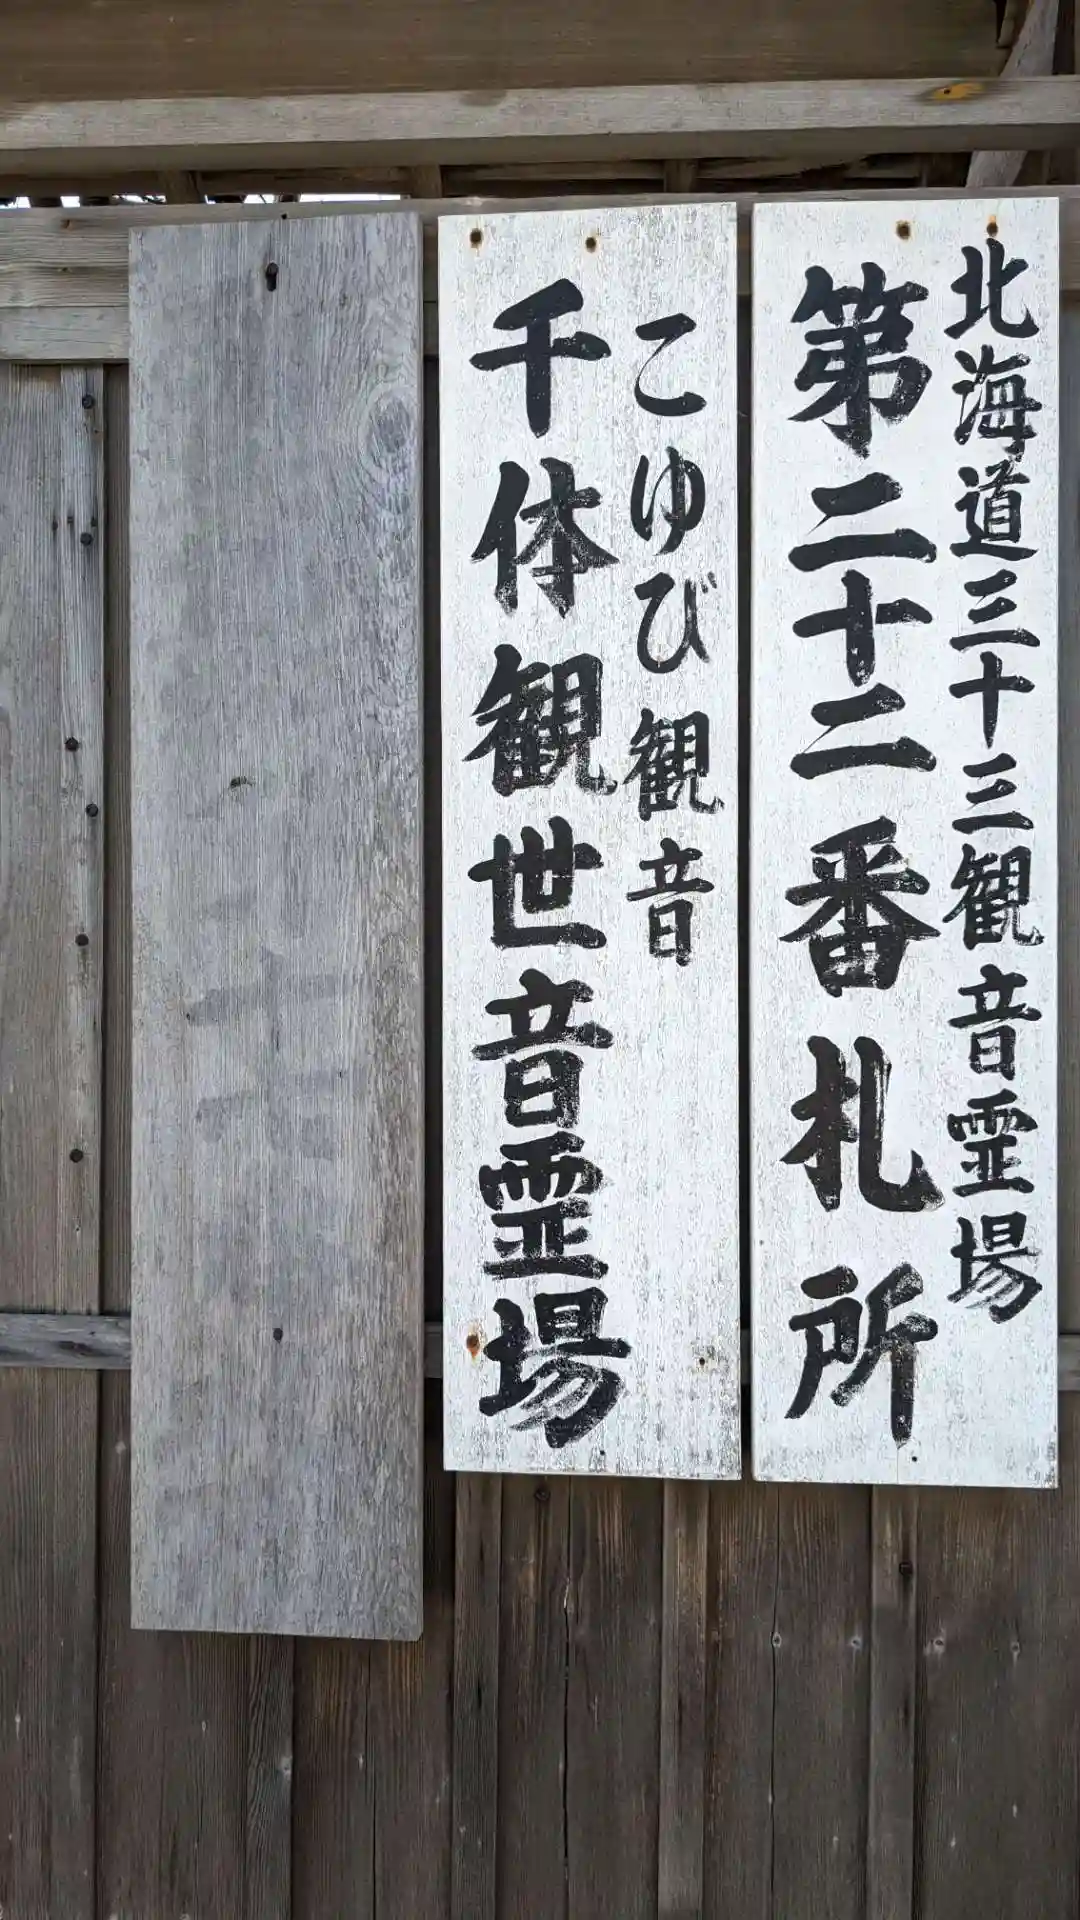 北海道三十三観音霊場
第二十二番札所
こゆび観音
千体観世音霊場